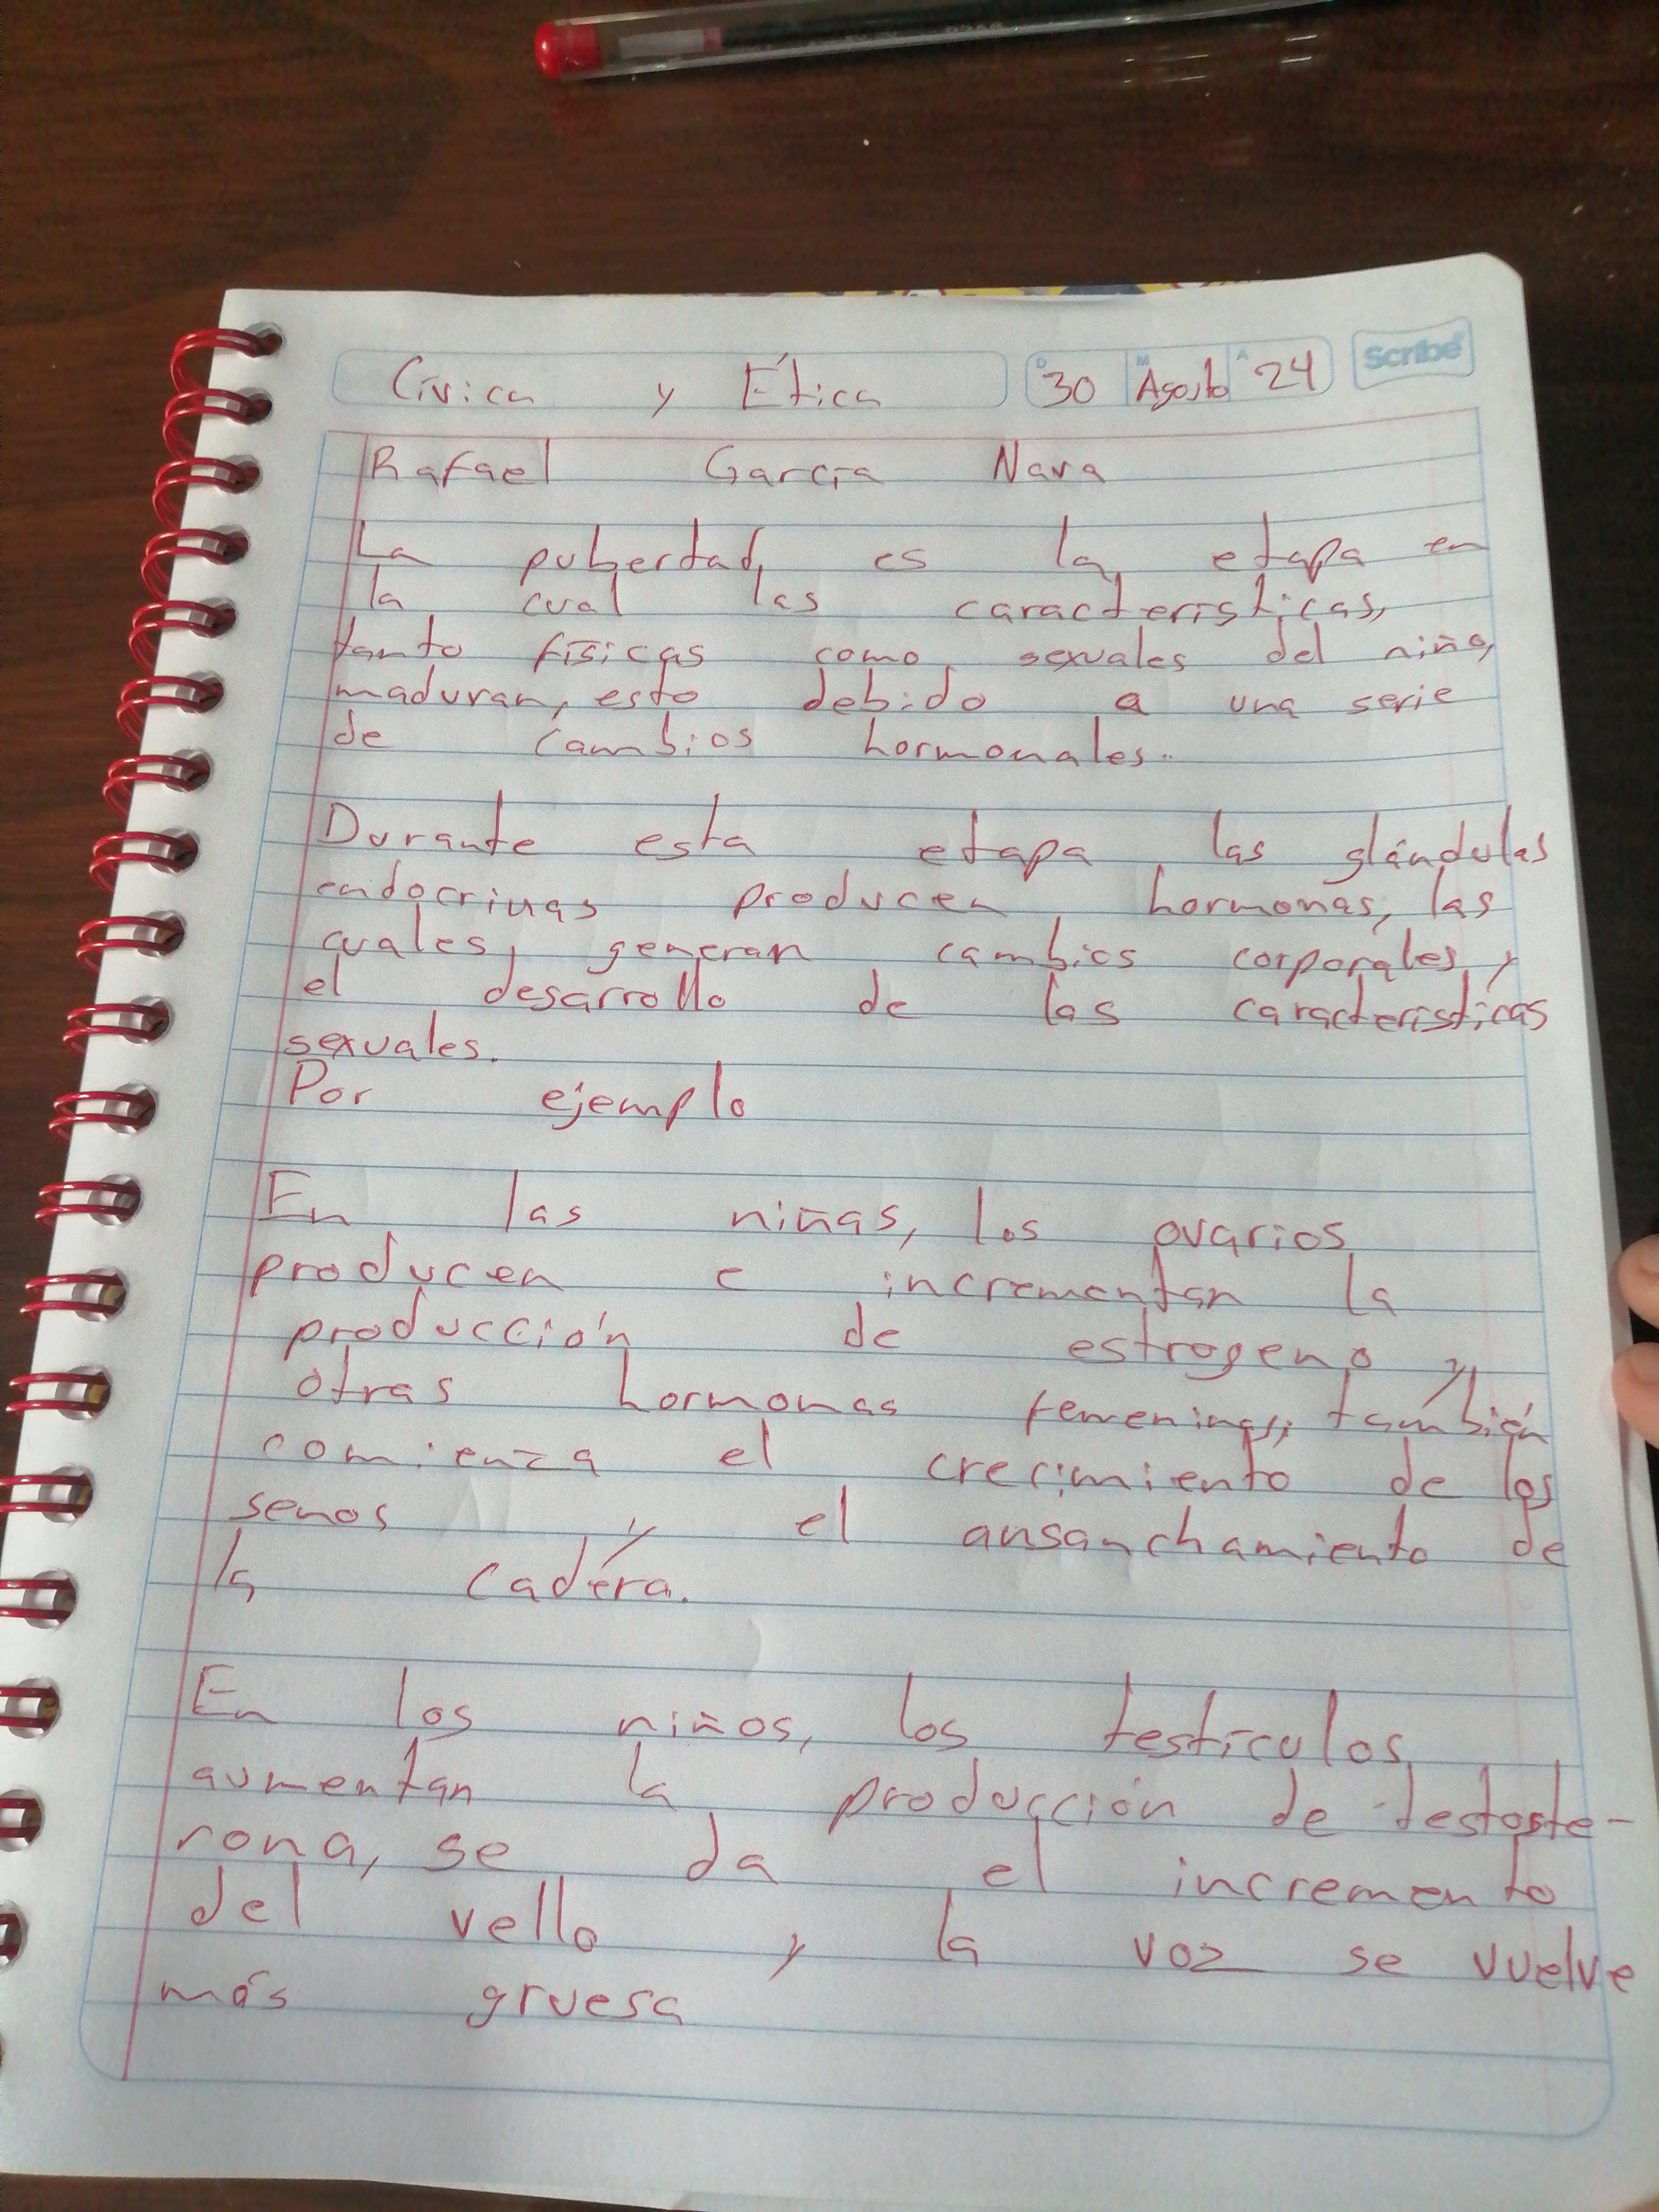 Cívica y Ética D 30 M Agosto A 24 Scribe
Rafael García Nava
La pubertad, es la etapa en
la cual las características,
tanto físicas como sexuales del niño,
maduran, esto debido a una serie
de cambios hormonales..
Durante esta etapa las glándulas
endocrinas producen hormonas, las
cuales, generan cambios corporales y
el desarrollo de las características
sexuales.
Por ejemplo
En las niñas, los ovarios
producen e incrementan la
producción de estrogeno y
otras hormonas femeninas, también
comienza el crecimiento de los
senos y el ansanchamiento de
la cadera.
En los niños, los testículos
aumentan la producción de testoste-
rona, se da el incremento
del vello y la voz se vuelve
más gruesa